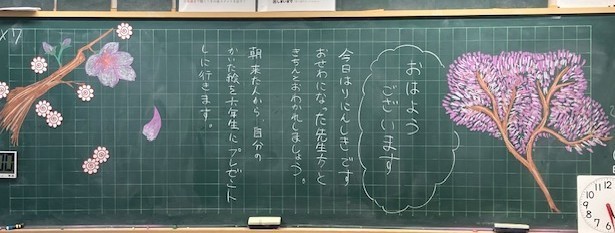 おはよう
ございます
今日はりにんしきです
おせわになった先生方と
きちんとおわかれしましょう。
朝来た人から、自分の
かいた絵を六年生にプレゼント
しに行きます。
11 12 1